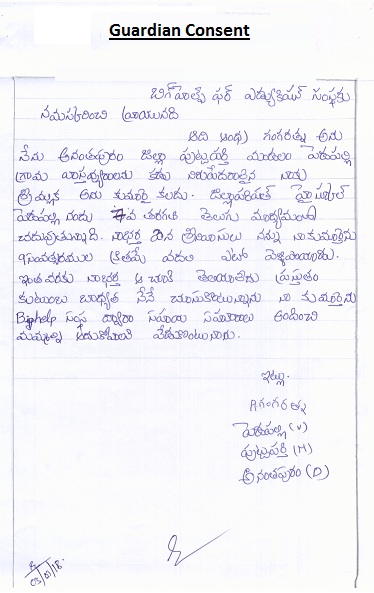 Guardian Consent
బిగ్ హెల్ప్ ఫర్ ఎడ్యుకేషన్ సంస్థకు
నమస్కరించి వ్రాయునది
గంగరత్న అను
నేను అనంతపురం జిల్లా పుట్టపర్తి మండలం పెడపల్లి
గ్రామ నిరుపేదరాలైన నాకు
అను కుమార్తె కలదు. జిల్లాపరిషత్ హైస్కూల్
పెడపల్లి నందు 7వ తరగతి తెలుగు మాధ్యమంలో
చదువుతున్నాది. నాభర్త నన్ను నా కుమార్తెను
9 సంవత్సరముల క్రితమే వదలి ఎటో వెళ్ళిపోయాడు.
ఇంతవరకు నాభర్త ఆచూకి తెలియలేదు ప్రస్తుతం
కుటుంబ బాధ్యత నేనే చూసుకొంటున్నాను నా కుమార్తెను
Bighelp సంస్థ ద్వారా సహాయ సహకారాలు అందించి
మమ్మల్ని ఆదుకోవాలని వేడుకొంటున్నాను.
ఇట్లు.
R గంగరత్న
పెడపల్లి (V)
పుట్టపర్తి (M)
అనంతపురం (D)